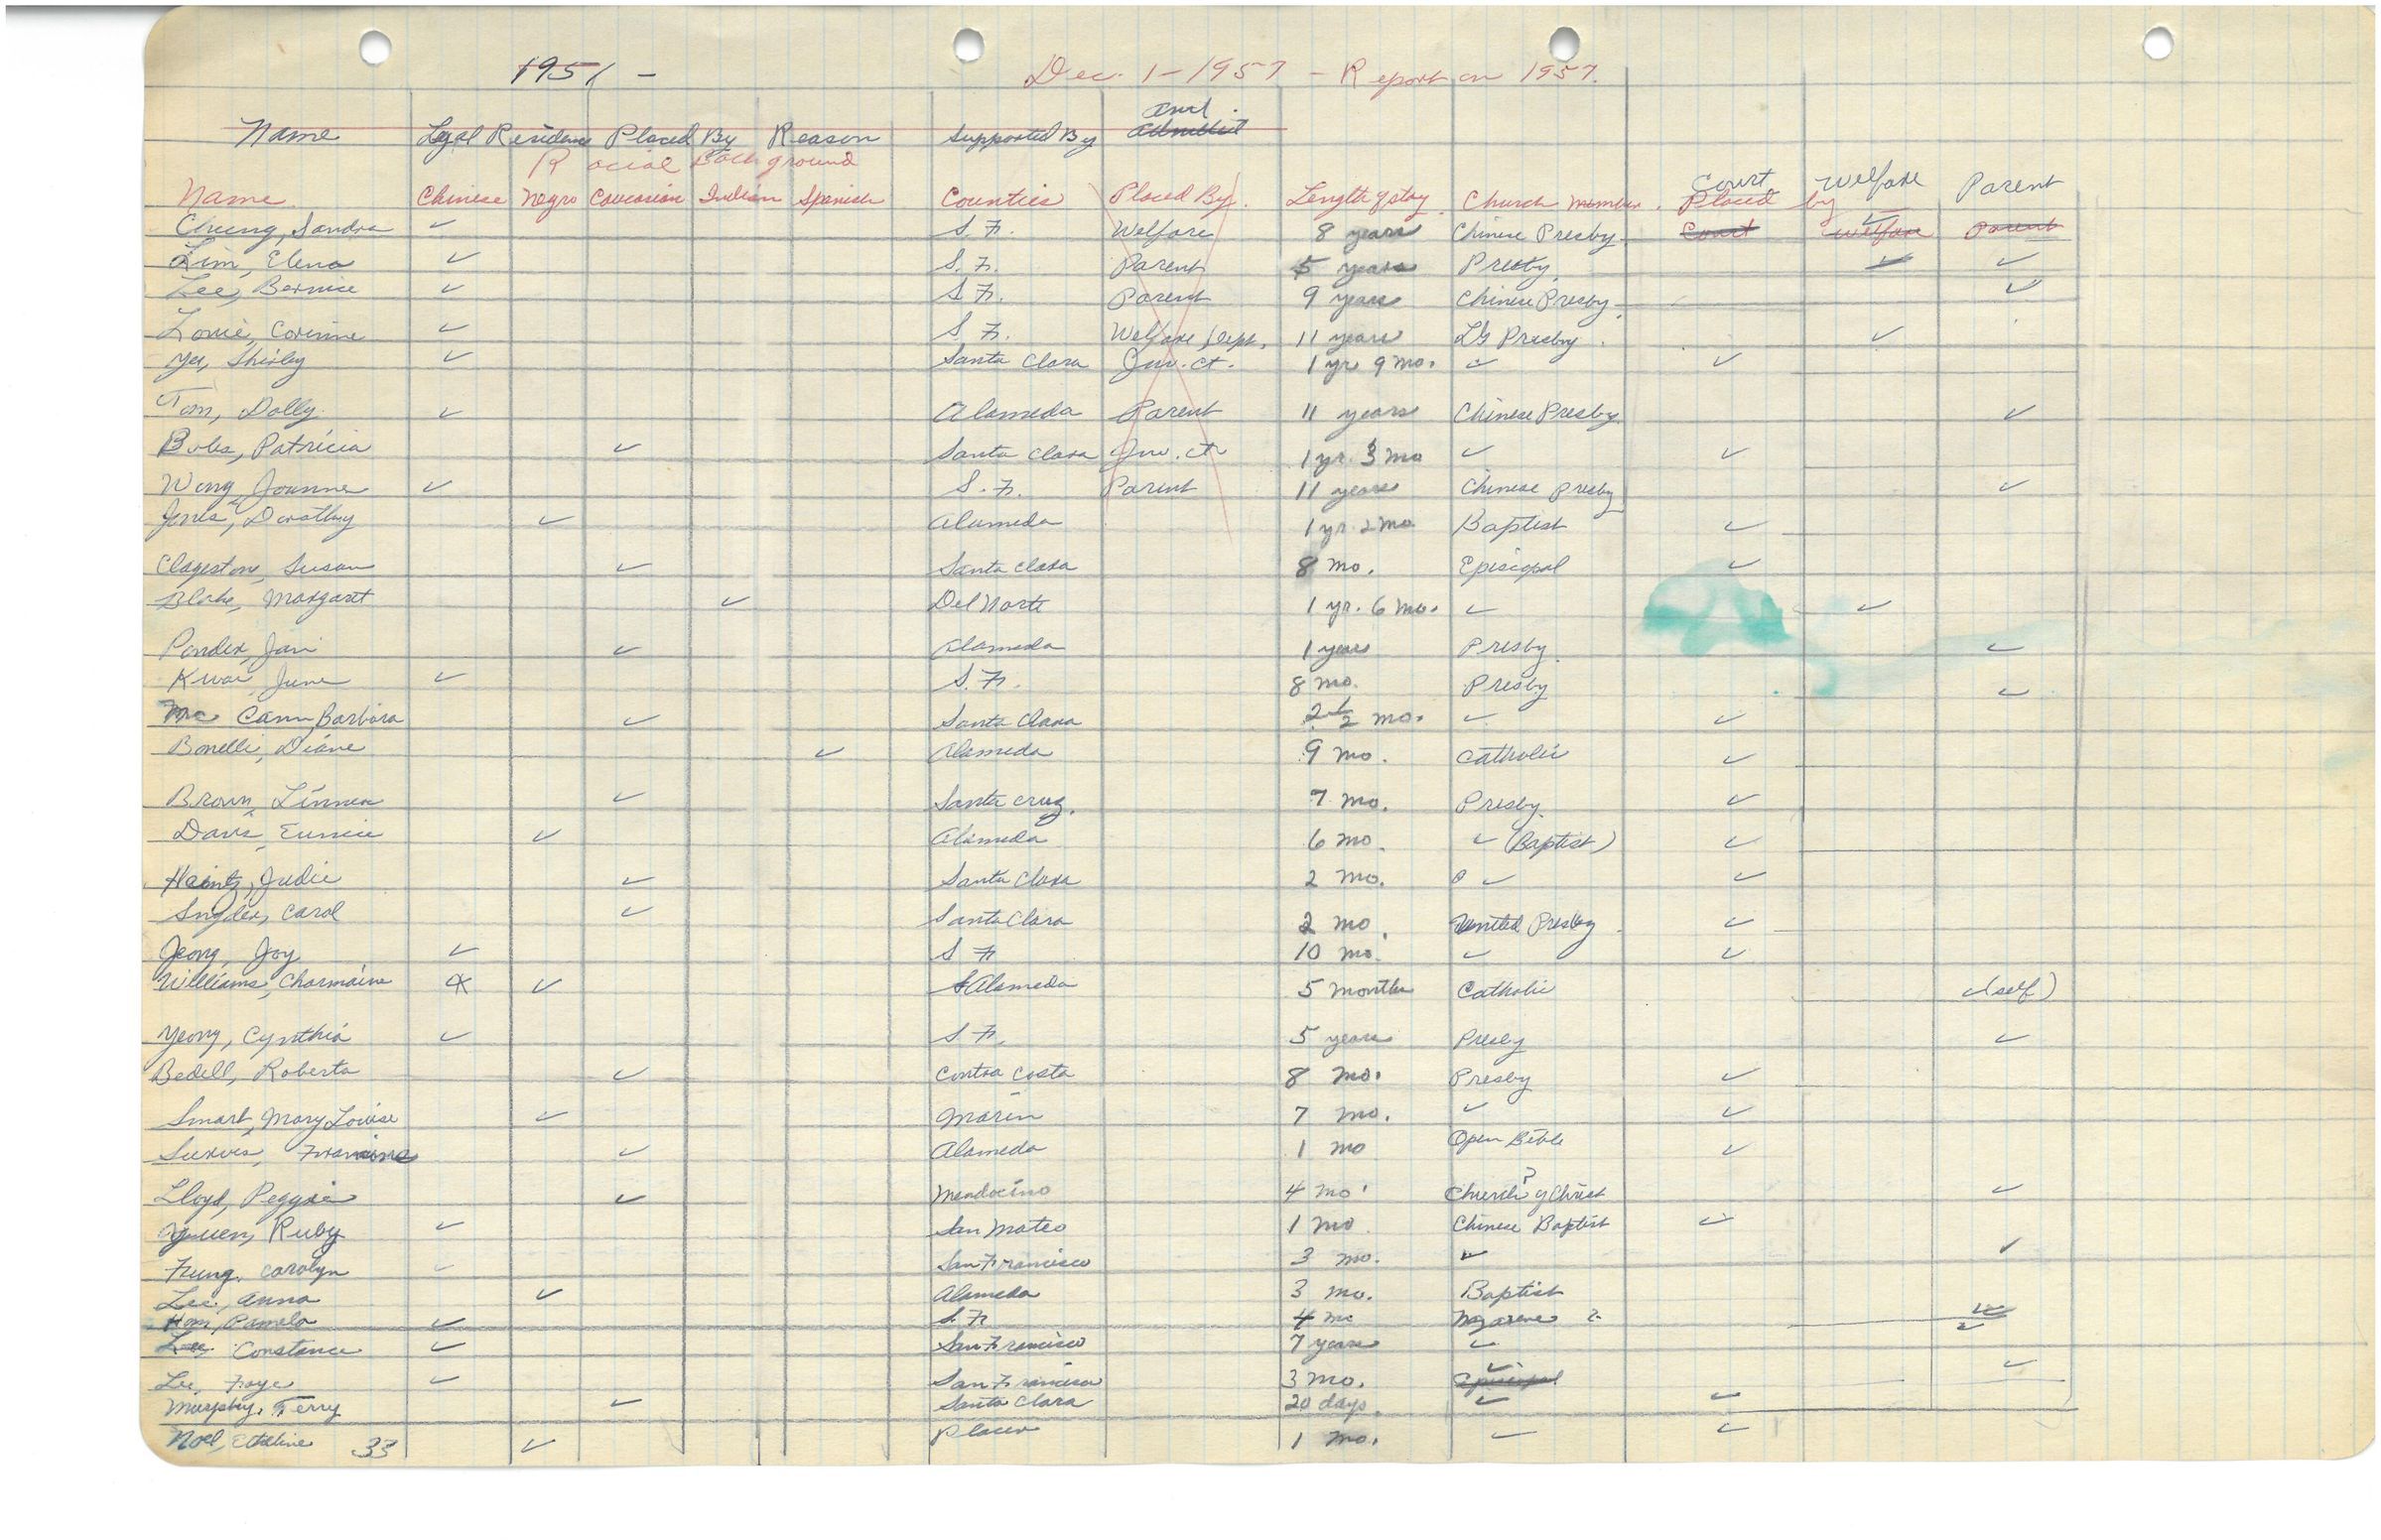 1951 - Dec. 1-1957 - Report on 1957.
and
Name Legal Residence Placed By Reason Supported By
Racial Background
Court Welfare Parent
Name Chinese Negro Caucasian Indian Spanish Counties Placed By. Length of stay Church member. Placed by
Cheung, Sandra ✓ S.F. Welfare 8 years Chinese Presby. Court Welfare ✓ Parent
Lim, Elena ✓ S.F. Parent 5 years Presby. ✓ ✓
Lee, Bernice ✓ S.F. Parent 9 years Chinese Presby. ✓
Louie, Corinne ✓ S.F. Welfare Dept. 11 years LG Presby. ✓
Yee, Shirley ✓ Santa Clara Juv. Ct. 1 yr 9 mo. ✓ ✓
Tom, Dolly ✓ Alameda Parent 11 years Chinese Presby. ✓
Patricia ✓ Santa Clara Juv. Ct. 1 yr. 3 mo ✓ ✓
Wong, Joanne ✓ S.F. Parent 11 years Chinese Presby ✓
Jones, Dorothy ✓ Alameda 1 yr 2 mo Baptist ✓
Susan ✓ Santa Clara 8 mo. Episcopal ✓
Blake, Margaret ✓ Del Norte 1 yr. 6 mo. ✓ ✓
Ponder, Jan ✓ Alameda 1 year Presby. ✓
June ✓ S.F. 8 mo. Presby ✓
Mc Cann, Barbara ✓ Santa Clara 2 1/2 mo. ✓ ✓
Bonelli, Diane ✓ Alameda 9 mo. Catholic ✓
Brown, Linnea ✓ Santa Cruz. 7 mo. Presby. ✓
Davis, Eunice ✓ Alameda 6 mo. ✓ (Baptist) ✓
Heintz, Judie ✓ Santa Clara 2 mo. ✓ ✓
Snyder, Carol ✓ Santa Clara 2 mo. United Presby ✓
Jeong, Joy ✓ S F 10 mo. ✓ ✓
Williams, Charmaine ✓ Alameda 5 months Catholic ✓ (self)
Yeong, Cynthia ✓ S F. 5 years Presby ✓
Bedell, Roberta ✓ Contra Costa 8 mo. Presby ✓
Smart, Mary Louise ✓ Marin 7 mo. ✓ ✓
✓ Alameda 1 mo Open Bible ✓
Lloyd, Peggie ✓ Mendocino 4 mo. Church of Christ ? ✓
Yuen, Ruby ✓ San Mateo 1 mo Chinese Baptist ✓
Fung, Carolyn ✓ San Francisco 3 mo. ✓ ✓
Lee, Anna ✓ Alameda 3 mo. Baptist
Hom, Pamela ✓ S. F. 4 mo Nazarene ? ✓
Lee, Constance ✓ San Francisco 7 years ✓ ✓
Lee, Faye ✓ San Francisco 3 mo. ✓ Episcopal ✓
Murphy, Terry ✓ Santa Clara 20 days ✓ ✓
Noel, 33 ✓ Placer 1 mo. ✓ ✓